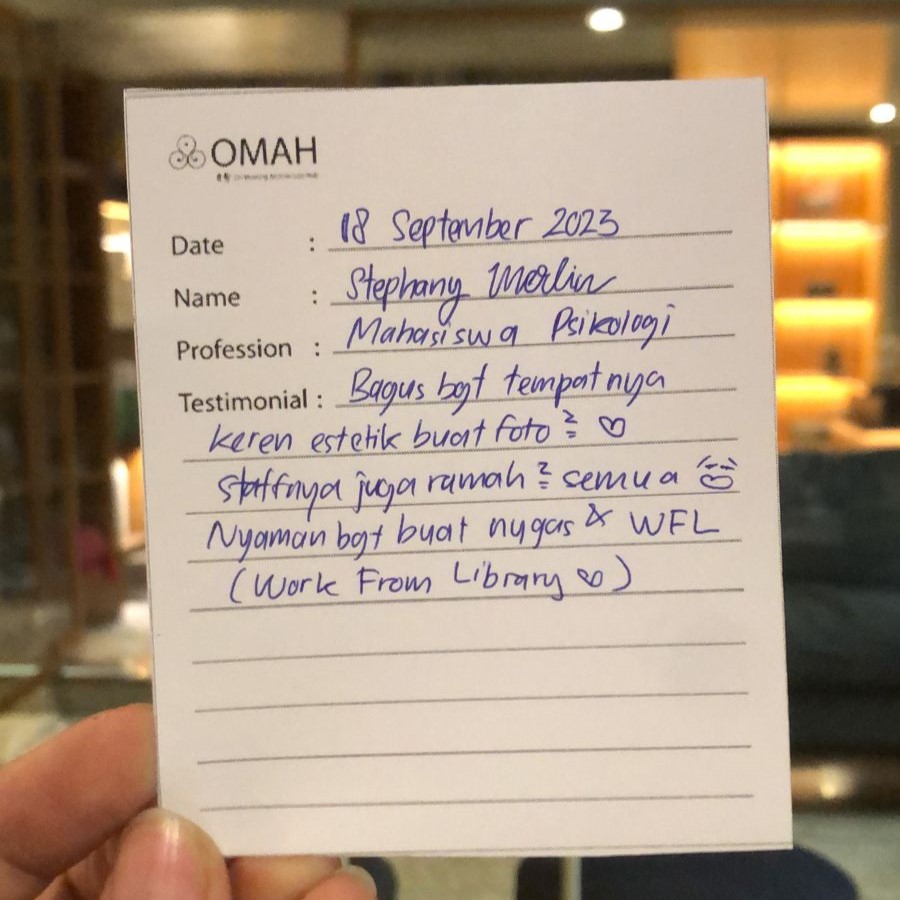 OMAH
Date : 18 September 2023
Name : Stephany Merlin
Profession : Mahasiswa Psikologi
Testimonial : Bagus bgt tempatnya
keren estetik buat foto² ♡
staffnya juga ramah² semua
Nyaman bgt buat nugas & WFL
(Work From Library ♡)